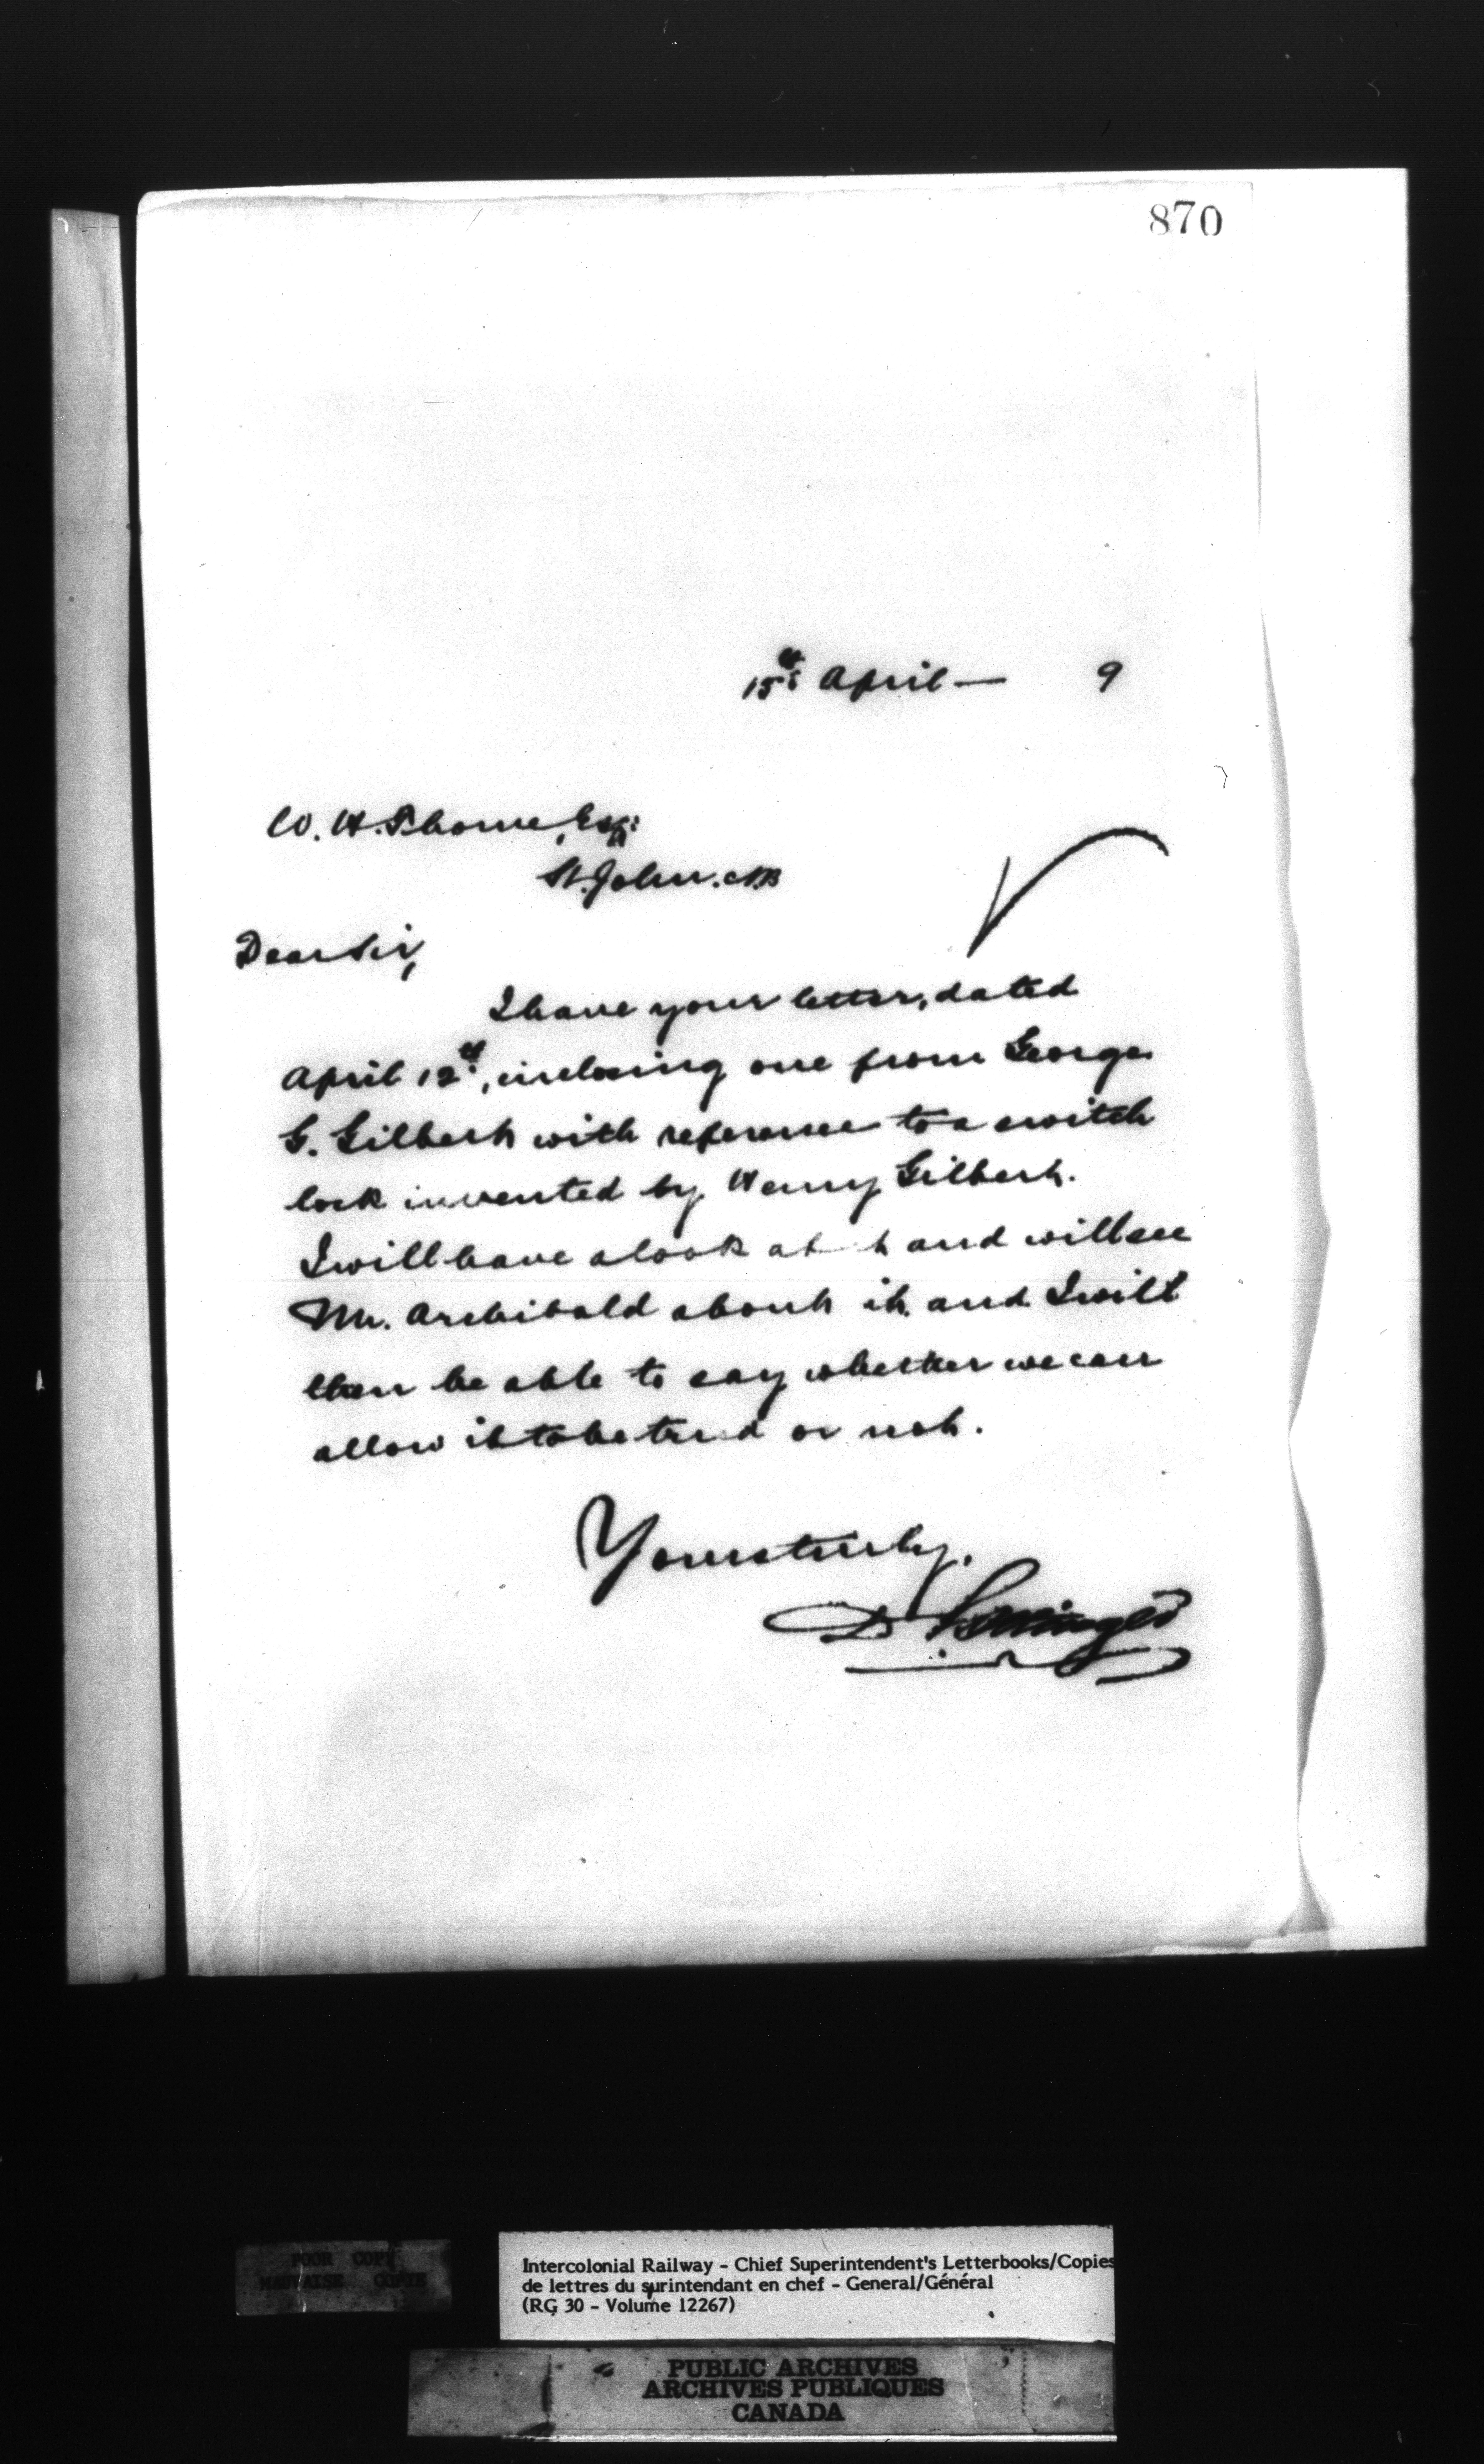 870
15th April — 9
W. H. Thorne, Esq:
St. John. NB
Dear Sir,
I have your letter, dated
April 12th, inclosing one from George
G. Gilbert with reference to a switch
lock invented by Henry Gilbert.
I will have a look at it and will see
Mr. Archibald about it and I will
then be able to say whether we can
allow it to be tried or not.
Yours truly,
D Pottinger
POOR COPY
MAUVAISE COPIE
Intercolonial Railway - Chief Superintendent's Letterbooks/Copies
de lettres du surintendant en chef - General/Général
(RG 30 - Volume 12267)
PUBLIC ARCHIVES
ARCHIVES PUBLIQUES
CANADA